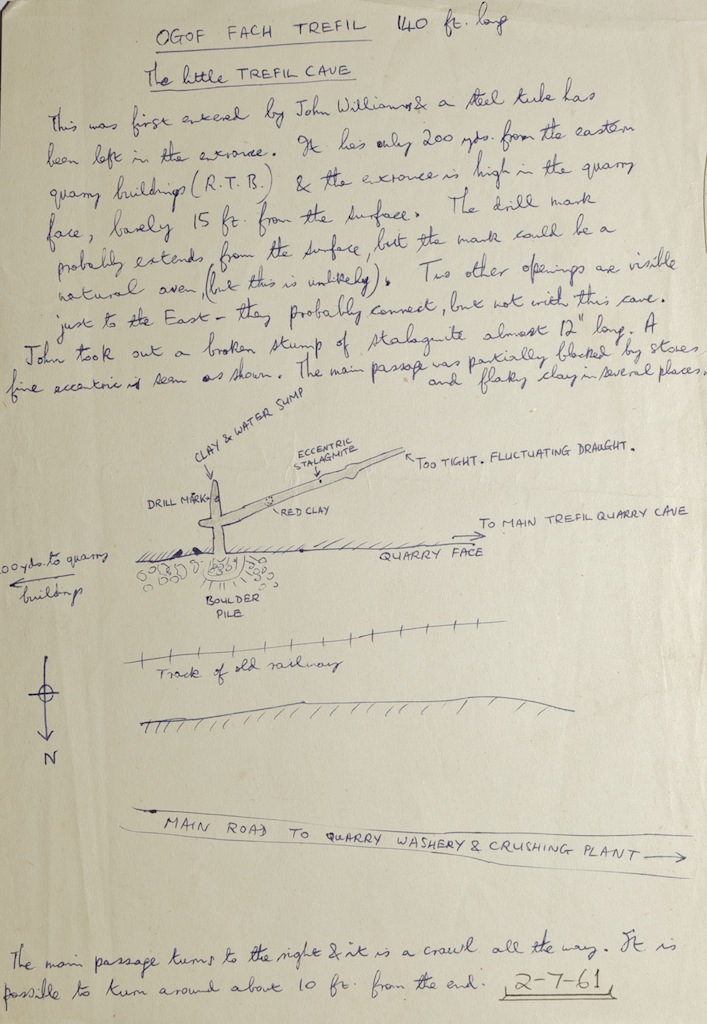 OGOF FACH TREFIL 140 ft. long
The little TREFIL CAVE
This was first entered by John Williams & a steel tube has
been left in the entrance. It lies only 200 yds. from the eastern
quarry buildings (R.T.B.) & the entrance is high in the quarry
face, barely 15 ft. from the surface. The drill mark
probably extends from the surface, but the mark could be a
natural aven, (but this is unlikely). Two other openings are visible
just to the East - they probably connect, but not with this cave.
John took out a broken stump of stalagmite almost 12" long. A
fine eccentric is seen as shown. The main passage was partially blocked by stones
and flaky clay in several places.
CLAY & WATER SUMP
ECCENTRIC
STALAGMITE
TOO TIGHT. FLUCTUATING DRAUGHT.
DRILL MARK
RED CLAY
TO MAIN TREFIL QUARRY CAVE
QUARRY FACE
00 yds. to quarry
buildings
BOULDER
PILE
Track of old railway
N
MAIN ROAD TO QUARRY WASHERY & CRUSHING PLANT
The main passage turns to the right & it is a crawl all the way. It is
possible to turn around about 10 ft. from the end. 2-7-61